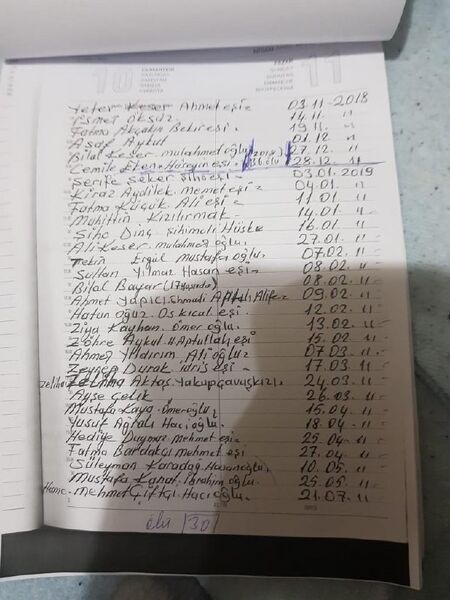 10 CUMARTESİ
11
Yeter Keser Ahmet eşi = 03-11-2018
İsmet Öksüz 14.11. "
Fatma Akçakın Bekir eşi. 19.11. "
Asaf Aykul 01.12. "
Bilal Keser mulahmet oğlu 27.12. "
Cemile Eken = Hüseyin eşi 2018 36. ölü 28.12. 11
Şerife Şeker 03.01.2019
Kiraz Aydilek memet eşi = 04.01. "
Fatma Küçük Ali eşi = 11.01 "
Muhittin Kızılırmak - 14.01 "
Siho Dinç 16.01 "
Ali Keser. mulahmet oğlu. 27.01. "
Tekin Ergül Mustafa oğlu. 07.02. "
Sultan Yılmaz Hasan eşi = 08.02 "
Bilal Bayar (17 08.02. 11-
Ahmet Yapıcı 09.02 11-
Hatun Oğuz Oskical eşi. 12.02. 11-
Ziya Kayhan. Ömer oğlu. 13.02. 11-
Zöhre Aykul Aptullah eşi 15.02 11-
Ahmet Yıldırım Ali oğlu = 07.03. 11-
Zeynep Durak idris eşi = 17.03. 11-
Zeliha Aktaş, Yakup çavuş kızı, 24.03. 11-
Ayşe Çelik 26.03. 11-
Mustafa Kaya. Ömer oğlu. 15.04. 11-
Yusuf Ağralı Hacı oğlu. 18.04. 11-
Hediye Duymaz Mehmet eşi = 25.04. 11-
Fatma Bardakçı Mehmet eşi 27.04. 11-
Süleyman Karadağ. Hasan oğlu. 10.05. 11-
Mustafa Kanat. İbrahim oğlu. 25.05. 11-
Mehmet Çiftçi. Hacı oğlu. 21.07. 11-
ölü 30